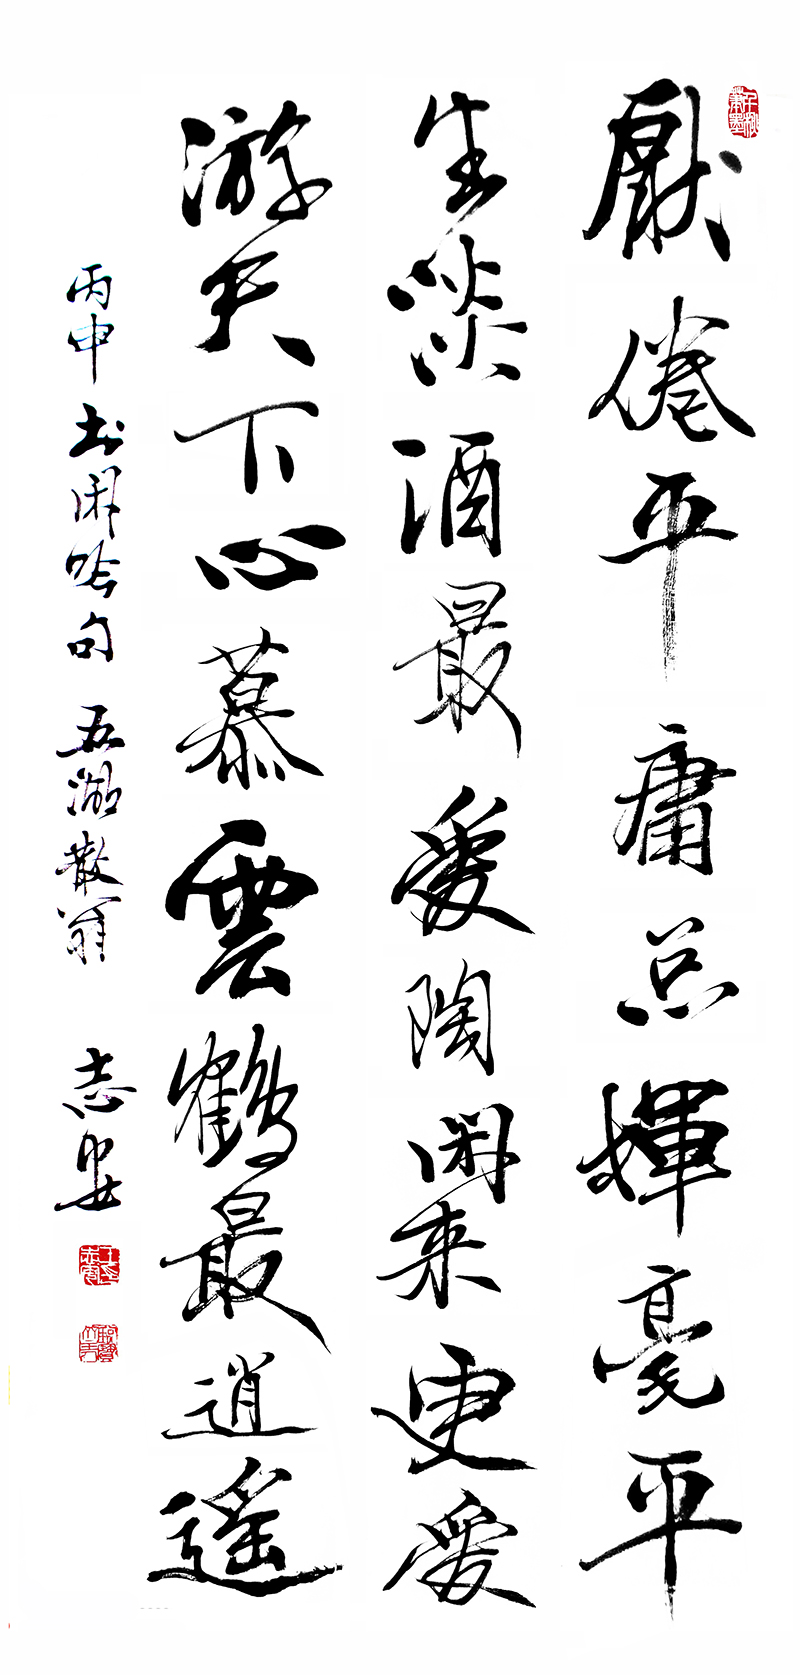 厭倦平庸总揮毫平
生淡酒最愛陶閑来更愛
游天下心慕雲鶴最逍遥
丙申 书闲吟句 五湖散翁 志